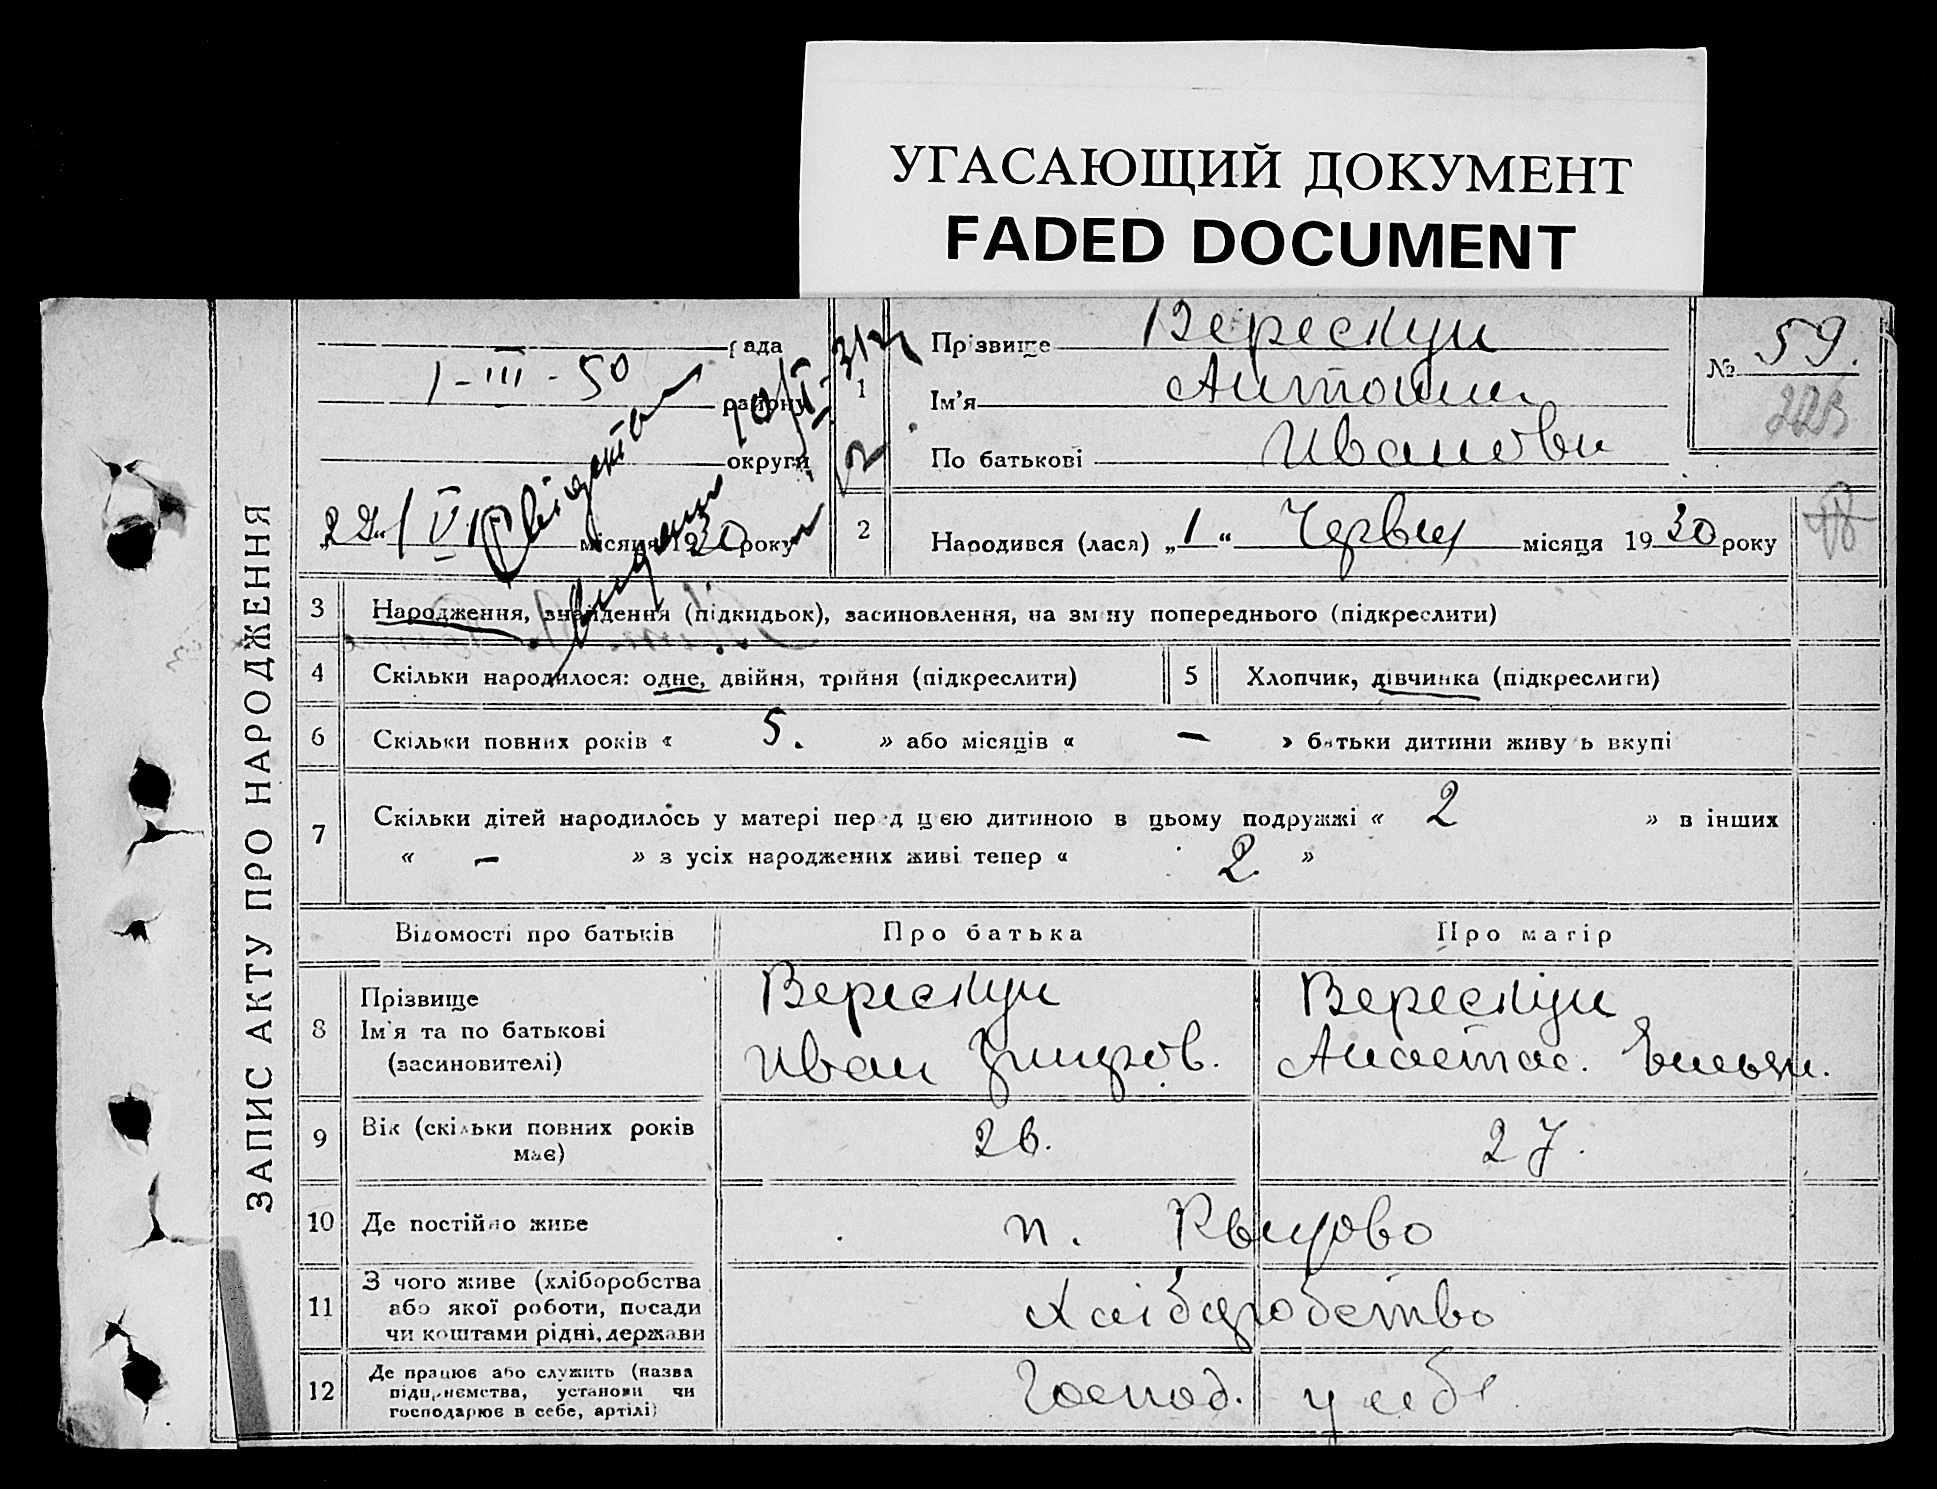 УГАСАЮЩИЙ ДОКУМЕНТ
FADED DOCUMENT
ЗАПИС АКТУ ПРО НАРОДЖЕННЯ
рада
1-III-50
району
округи
місяця 1930 року
1
Прізвище Верескун
Ім'я
По батькові Ивановн
№ 59.
2
Народився (лася) „1“ Червня місяця 1930 року
3 Народження, знайдення (підкидьок), засиновлення, на зміну попереднього (підкреслити)
4 Скільки народилося: одне, двійня, трійня (підкреслити)
5 Хлопчик, дівчинка (підкреслити)
6 Скільки повних років « 5. » або місяців « — » батьки дитини живуть вкупі
7 Скільки дітей народилось у матері перед цією дитиною в цьому подружжі « 2 » в інших
« — » з усіх народжених живі тепер « 2 »
Відомості про батьків Про батька Про матір
8 Прізвище
Ім'я та по батькові
(засиновителі)
Верескун
Иван
Верескун
Анастас. Емельян.
9 Вік (скільки повних років
має)
26. 27.
10 Де постійно живе
п. Рыково
11 З чого живе (хліборобства
або якої роботи, посади
чи коштами рідні, держави
Хліборобство
12 Де працює або служить (назва
підприємства, установи чи
господарює в себе, артілі)
Господ. у себе